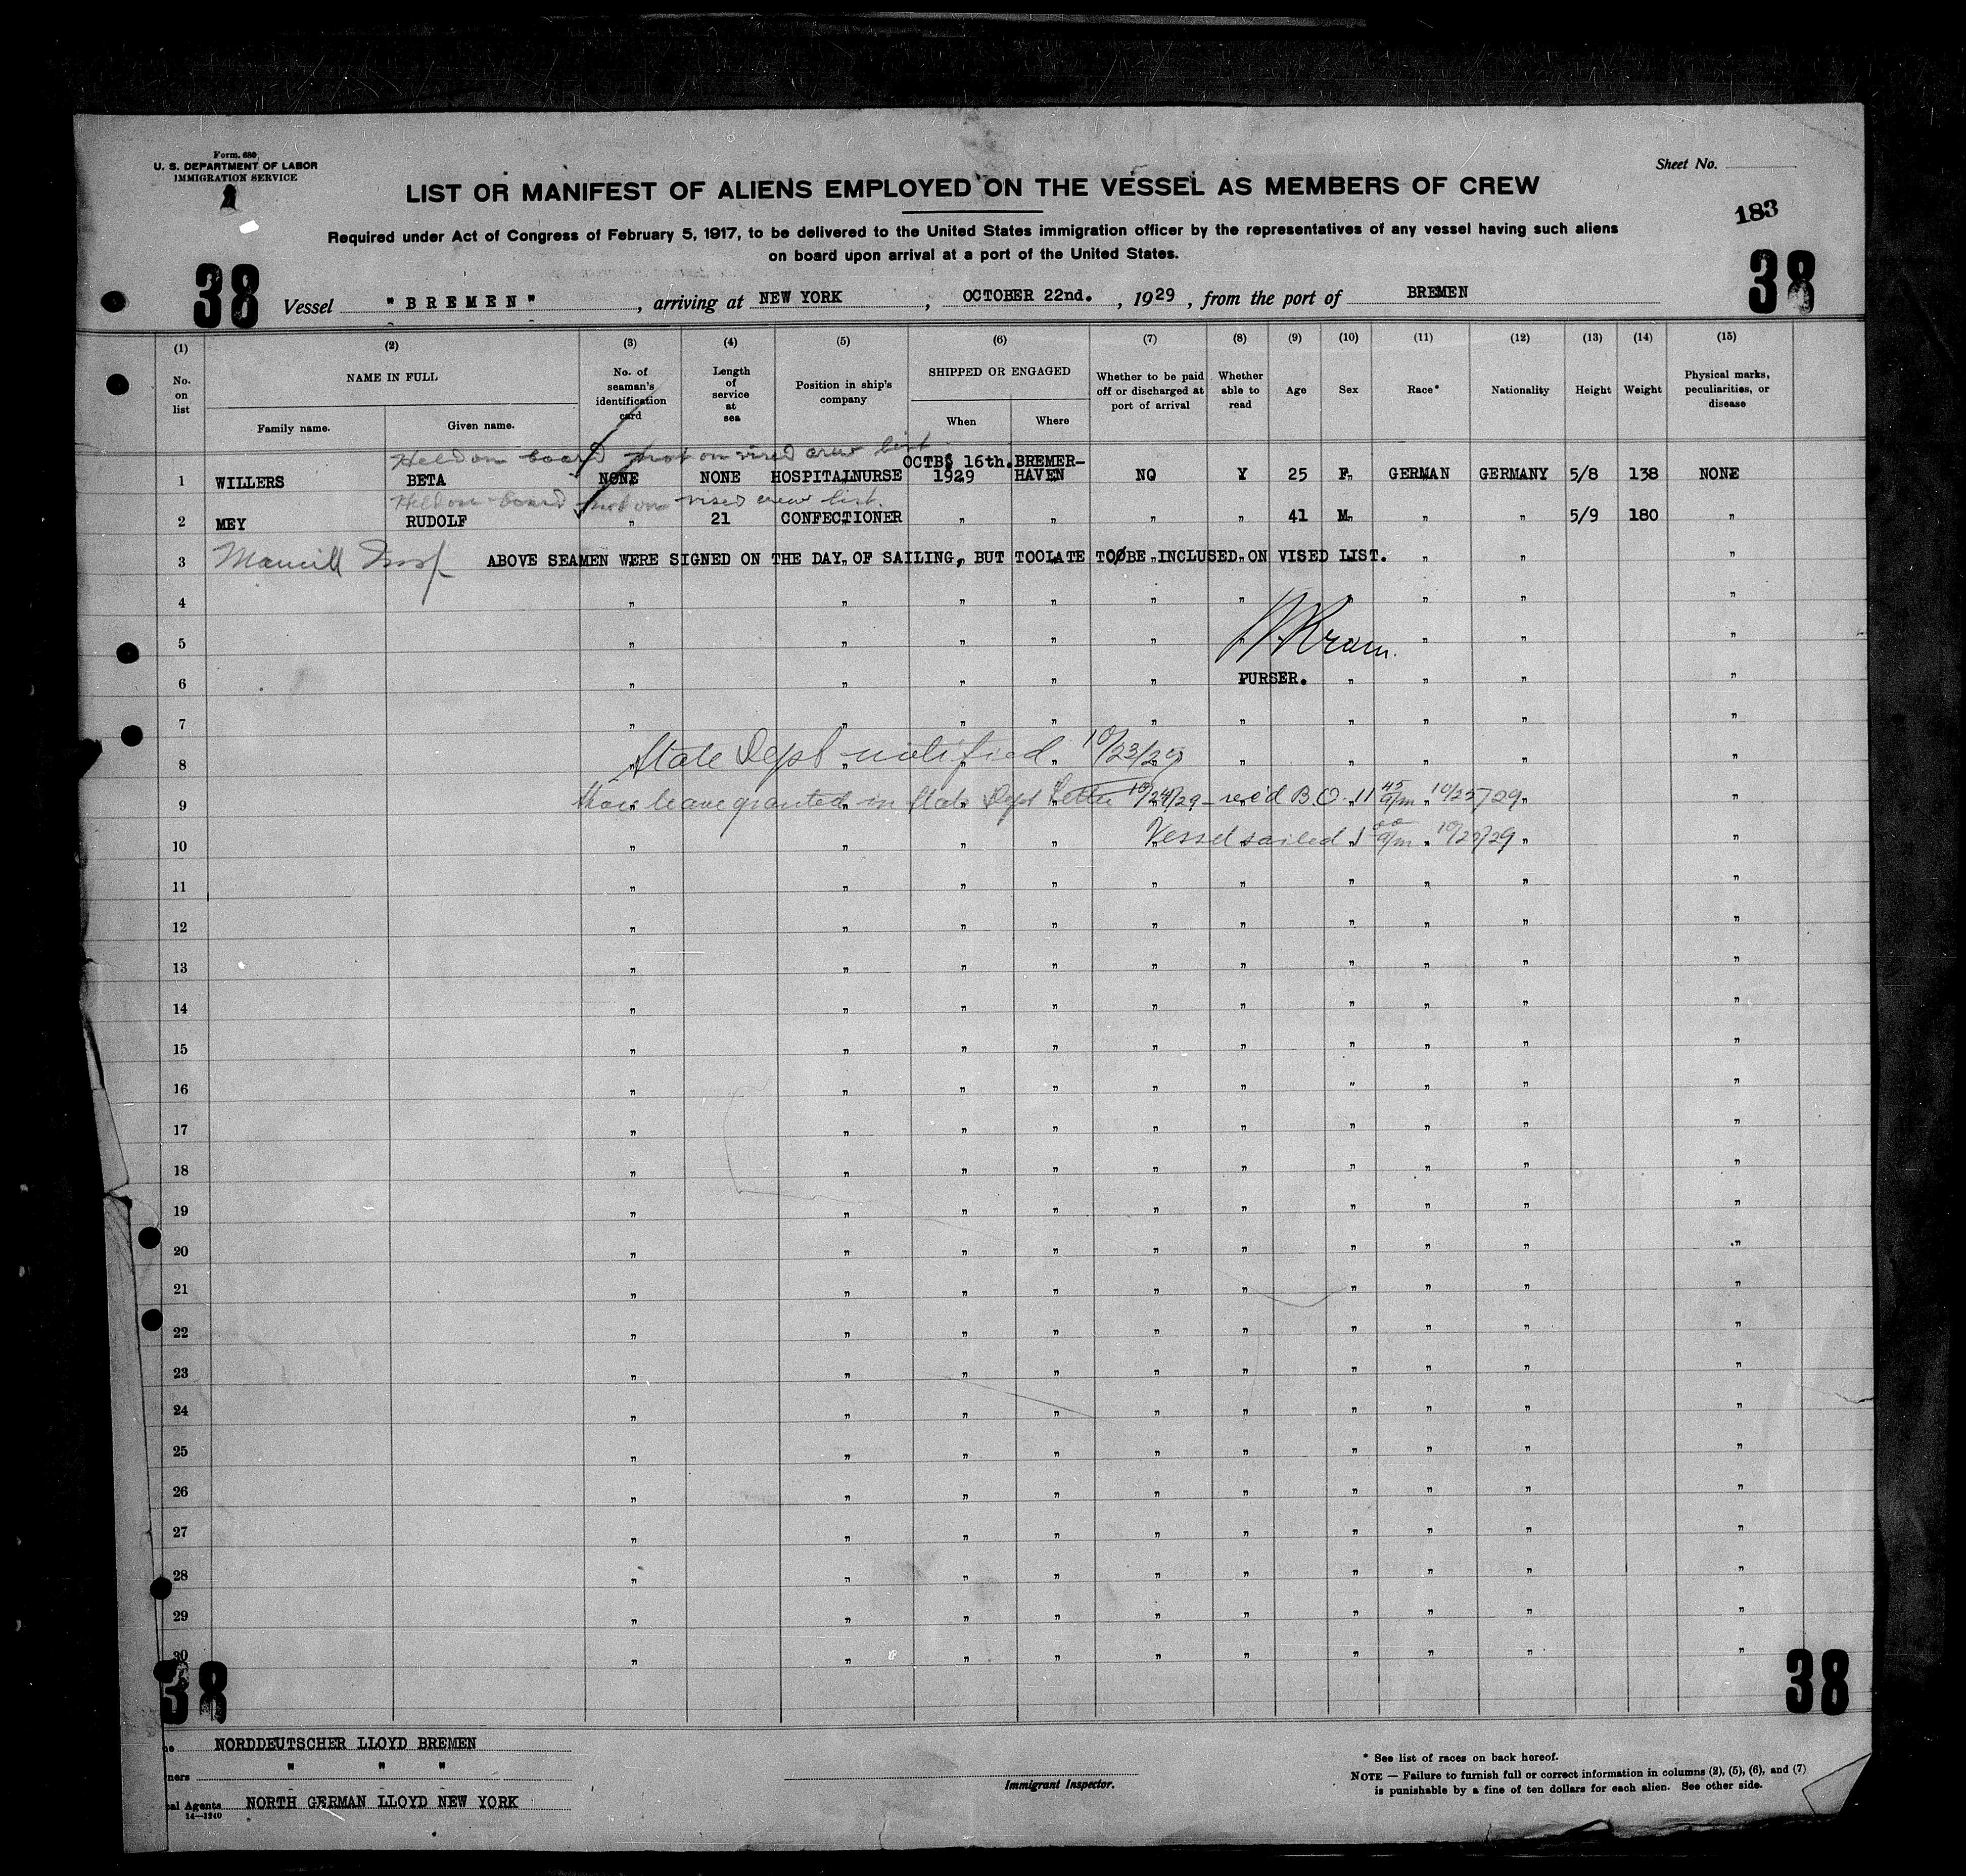 Form. 680
U. S. DEPARTMENT OF LABOR
IMMIGRATION SERVICE
Sheet No.
LIST OR MANIFEST OF ALIENS EMPLOYED ON THE VESSEL AS MEMBERS OF CREW
183
Required under Act of Congress of February 5, 1917, to be delivered to the United States immigration officer by the representatives of any vessel having such aliens
on board upon arrival at a port of the United States.
38 Vessel "BREMEN", arriving at NEW YORK, OCTOBER 22nd., 1929, from the port of BREMEN 38
(1) (2) (3) (4) (5) (6) (7) (8) (9) (10) (11) (12) (13) (14) (15)
No. on list NAME IN FULL Family name. Given name. No. of seaman's identification card Length of service at sea Position in ship's company SHIPPED OR ENGAGED When Where Whether to be paid off or discharged at port of arrival Whether able to read Age Sex Race* Nationality Height Weight Physical marks, peculiarities, or disease
Held on board not on vised crew list
1 WILLERS BETA NONE NONE HOSPITALNURSE OCTBS 16th. 1929 BREMER-HAVEN NO Y 25 F. GERMAN GERMANY 5/8 138 NONE
Held on board not on vised crew list
2 MEY RUDOLF " 21 CONFECTIONER " " " " 41 M. " " 5/9 180 "
3 ABOVE SEAMEN WERE SIGNED ON THE DAY OF SAILING, BUT TOOLATE TOOBE INCLUSED ON VISED LIST. " " "
4 " " " " " " " " " "
5 " " " " " " " "
6 " " " " " PURSER. " " " "
7 " " " " " " " " " "
8 State Dept notified 10/23/29 " " " " "
9 Shore leave granted in State Dept Letter 10/24/29 - rec'd B.O. 11 45 a/m 10/25/29 "
10 " " " " Vessel sailed 1 00 a/m 10/25/29 " "
11 " " " " " " " " " "
12 " " " " " " " " " "
13 " " " " " " " " " "
14 " " " " " " " " " "
15 " " " " " " " " " "
16 " " " " " " " " " "
17 " " " " " " " " " "
18 " " " " " " " " " "
19 " " " " " " " " " "
20 " " " " " " " " " "
21 " " " " " " " " " "
22 " " " " " " " " " "
23 " " " " " " " " " "
24 " " " " " " " " " "
25 " " " " " " " " " "
26 " " " " " " " " " "
27 " " " " " " " " " "
28 " " " " " " " " " "
29 " " " " " " " " " "
30 " " " " " " " " " "
38 38
NORDDEUTSCHER LLOYD BREMEN
" " "
Agents NORTH GERMAN LLOYD NEW YORK
14—1240
Immigrant Inspector.
* See list of races on back hereof.
NOTE — Failure to furnish full or correct information in columns (2), (5), (6), and (7)
is punishable by a fine of ten dollars for each alien. See other side.